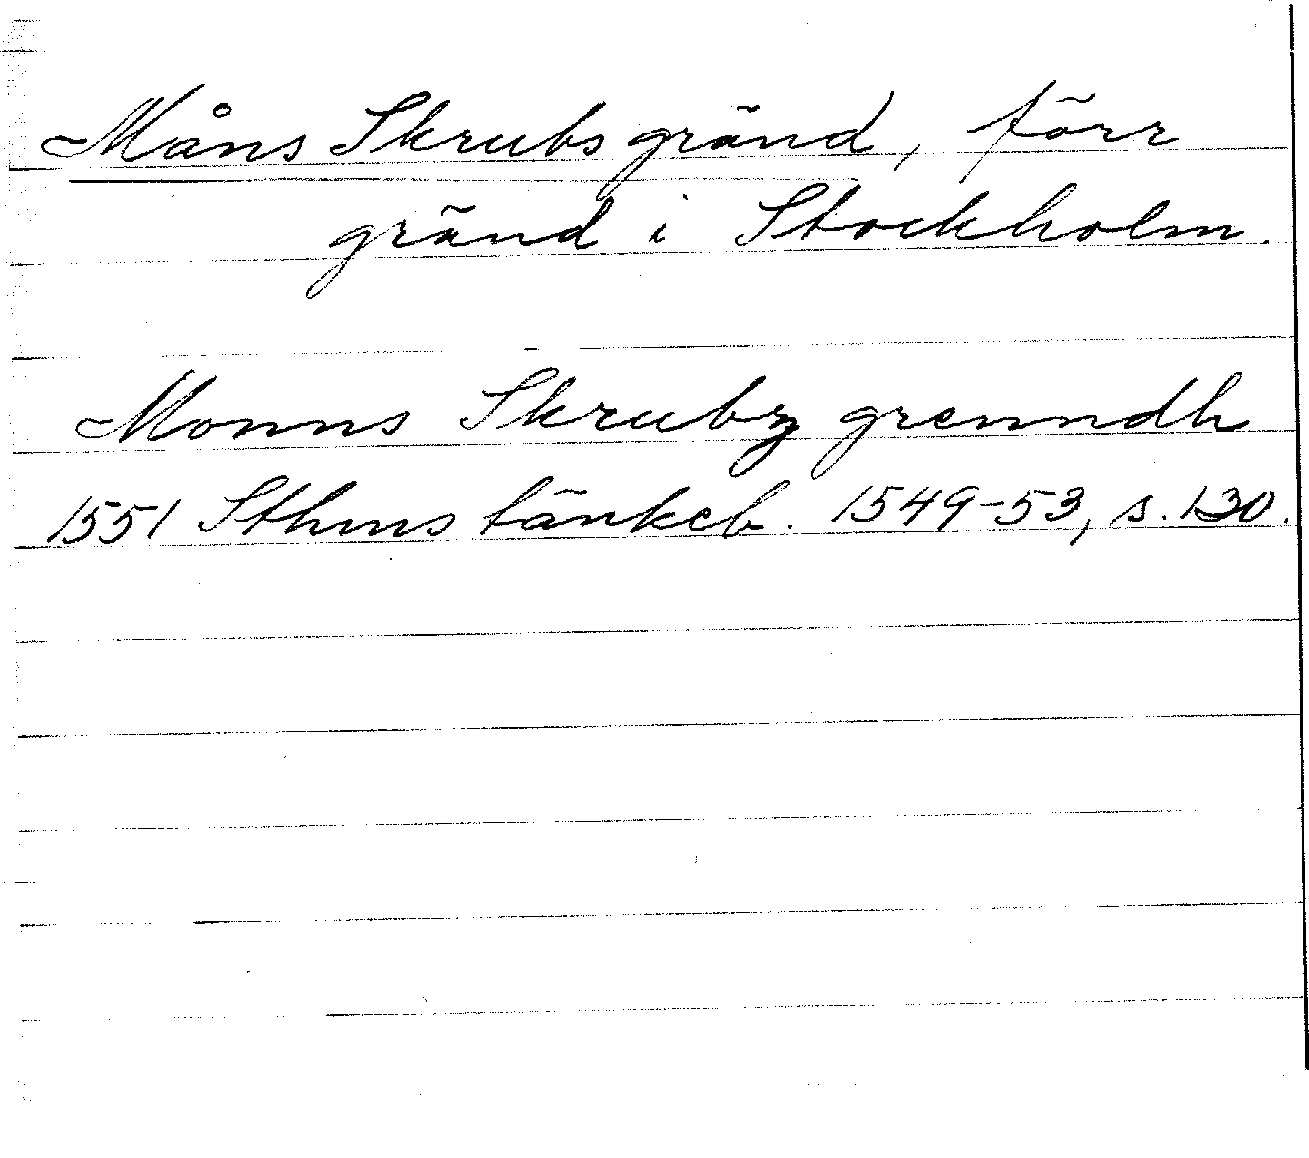 Måns Skrubs gränd, förr
gränd i Stockholm.
Monns Skrubz grenndh
1551 Sthms tänkeb. 1549-53, s. 130.